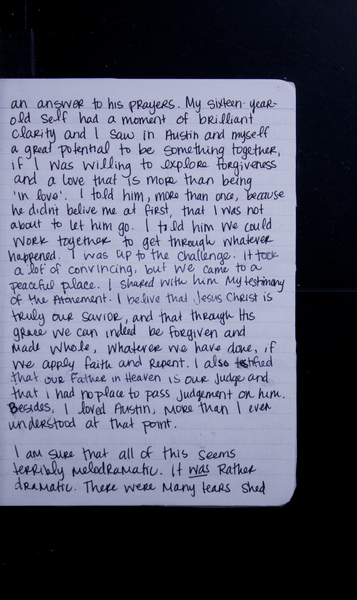 an answer to his prayers. My sixteen-year-
old self had a moment of brilliant
clarity and I saw in Austin and myself
a great potential to be something together,
if I was willing to explore forgiveness
and a love that is more than being
'in love'. I told him, more than once, because
he didnt belive me at first, that I was not
about to let him go. I told him we could
work together to get through whatever
happened. I was up to the challenge. It took
a lot of convincing, but we came to a
peaceful place. I shared with him my testimony
of the Atonement. I belive that Jesus Christ is
truly our Savior, and that through His
grace we can indeed be forgiven and
made whole, whatever we have done, if
we apply faith and repent. I also testified
that our Father in Heaven is our judge and
that i had no place to pass judgement on him.
Besides, I loved Austin, more than I even
understood at that point.

I am sure that all of this seems
terribly melodramatic. It was rather
dramatic. There were many tears shed